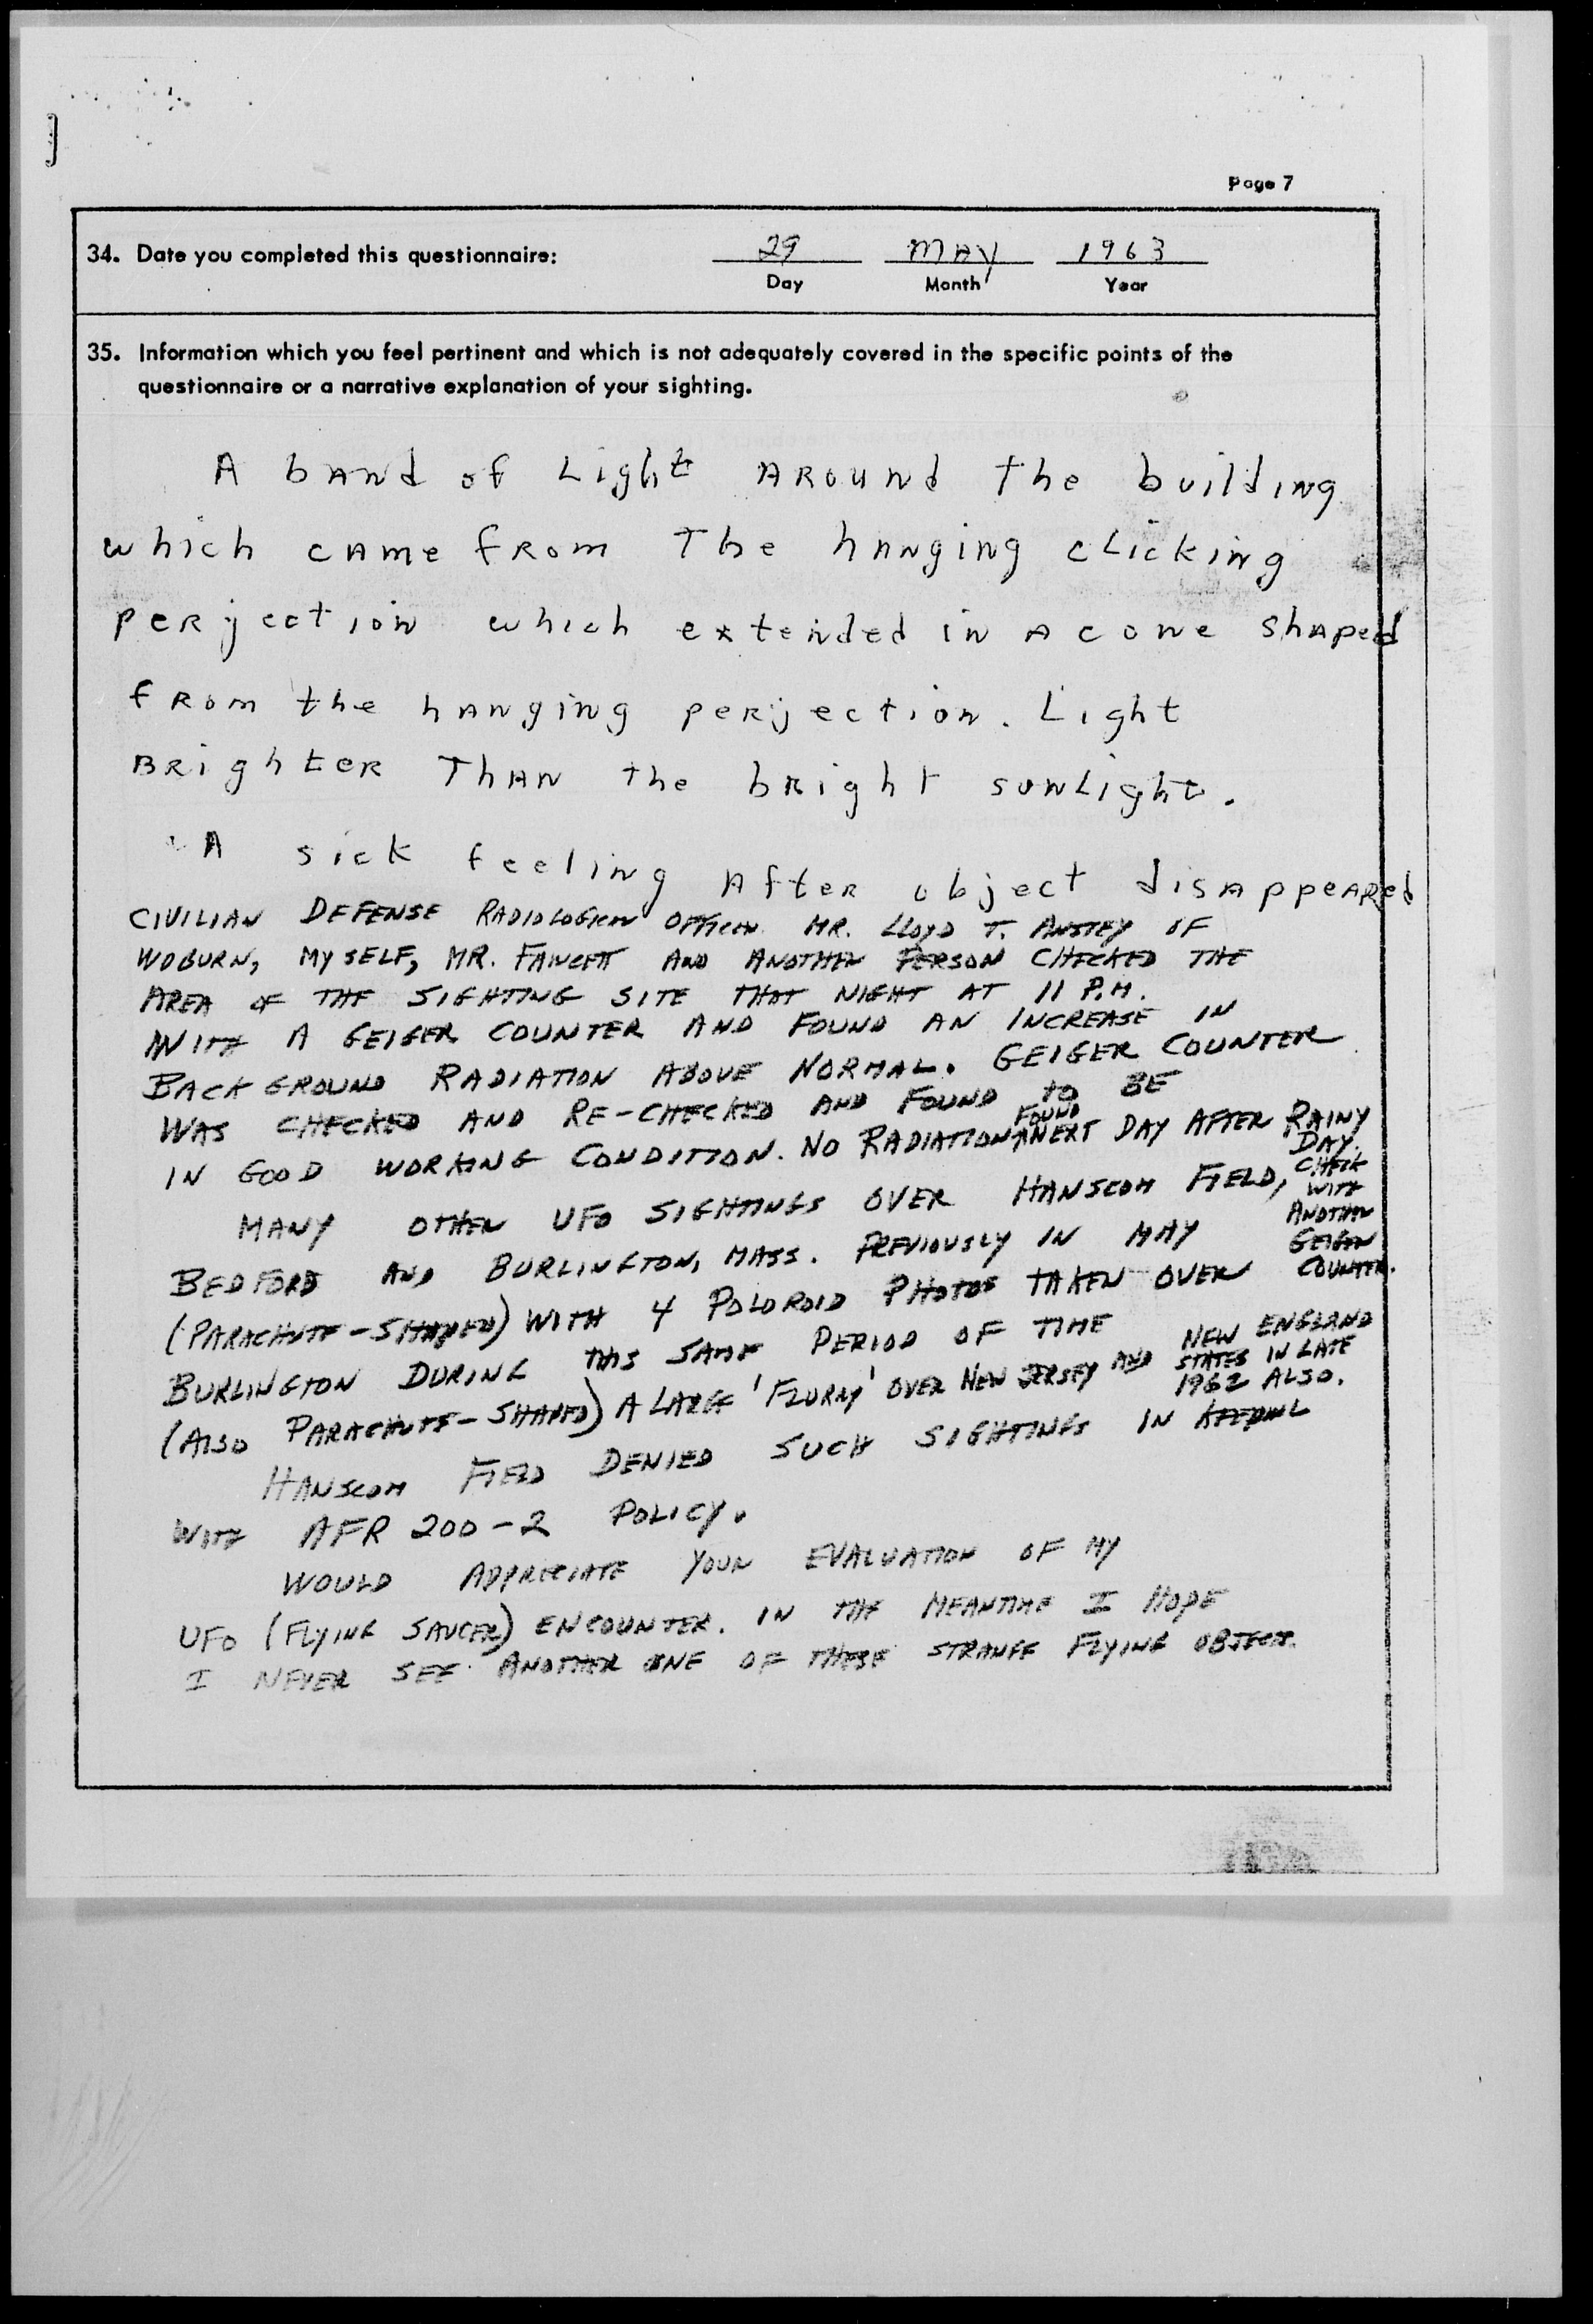 Page 7
34. Date you completed this questionnaire:
29 MAY 1963
Day Month Year
35. Information which you feel pertinent and which is not adequately covered in the specific points of the
questionnaire or a narrative explanation of your sighting.
A bANd of Light AROUNd The buildiNg
which CAMe fROM The hANgiNg cLickiNg
peRjectioN which exteNded iN A coNe shAped
fROM the hANgiNg peRjectioN. Light
BRighteR ThAN the bRight suNLight.
A sick feeliNg AfteR object disAppeARed
CIVILIAN DEFENSE RADIOLOGICAL OFFICER MR. LLOYD T. ANSTEY OF
WOBURN, MYSELF, MR. FAWCETT AND ANOTHER PERSON CHECKED THE
AREA OF THE SIGHTING SITE THAT NIGHT AT 11 P.M.
WITH A GEIGER COUNTER AND FOUND AN INCREASE IN
BACKGROUND RADIATION ABOVE NORMAL. GEIGER COUNTER
WAS CHECKED AND RE-CHECKED AND FOUND TO BE
IN GOOD WORKING CONDITION. NO RADIATION FOUND NEXT DAY AFTER RAINY
DAY.
CHECK
WITH
ANOTHER
GEIGER
COUNTER.
MANY OTHER UFO SIGHTINGS OVER HANSCOM FIELD,
BEDFORD AND BURLINGTON, MASS. PREVIOUSLY IN MAY
(PARACHUTE-SHAPED) WITH 4 POLOROID PHOTOS TAKEN OVER
BURLINGTON DURING THIS SAME PERIOD OF TIME
(ALSO PARACHUTE-SHAPED) A LARGE 'FLURRY' OVER NEW JERSEY AND NEW ENGLAND
STATES IN LATE
1962 ALSO.
HANSCOM FIELD DENIED SUCH SIGHTINGS IN KEEPING
WITH AFR 200-2 POLICY.
WOULD APPRECIATE YOUR EVALUATION OF MY
UFO (FLYING SAUCER) ENCOUNTER. IN THE MEANTIME I HOPE
I NEVER SEE ANOTHER ONE OF THESE STRANGE FLYING OBJECTS.